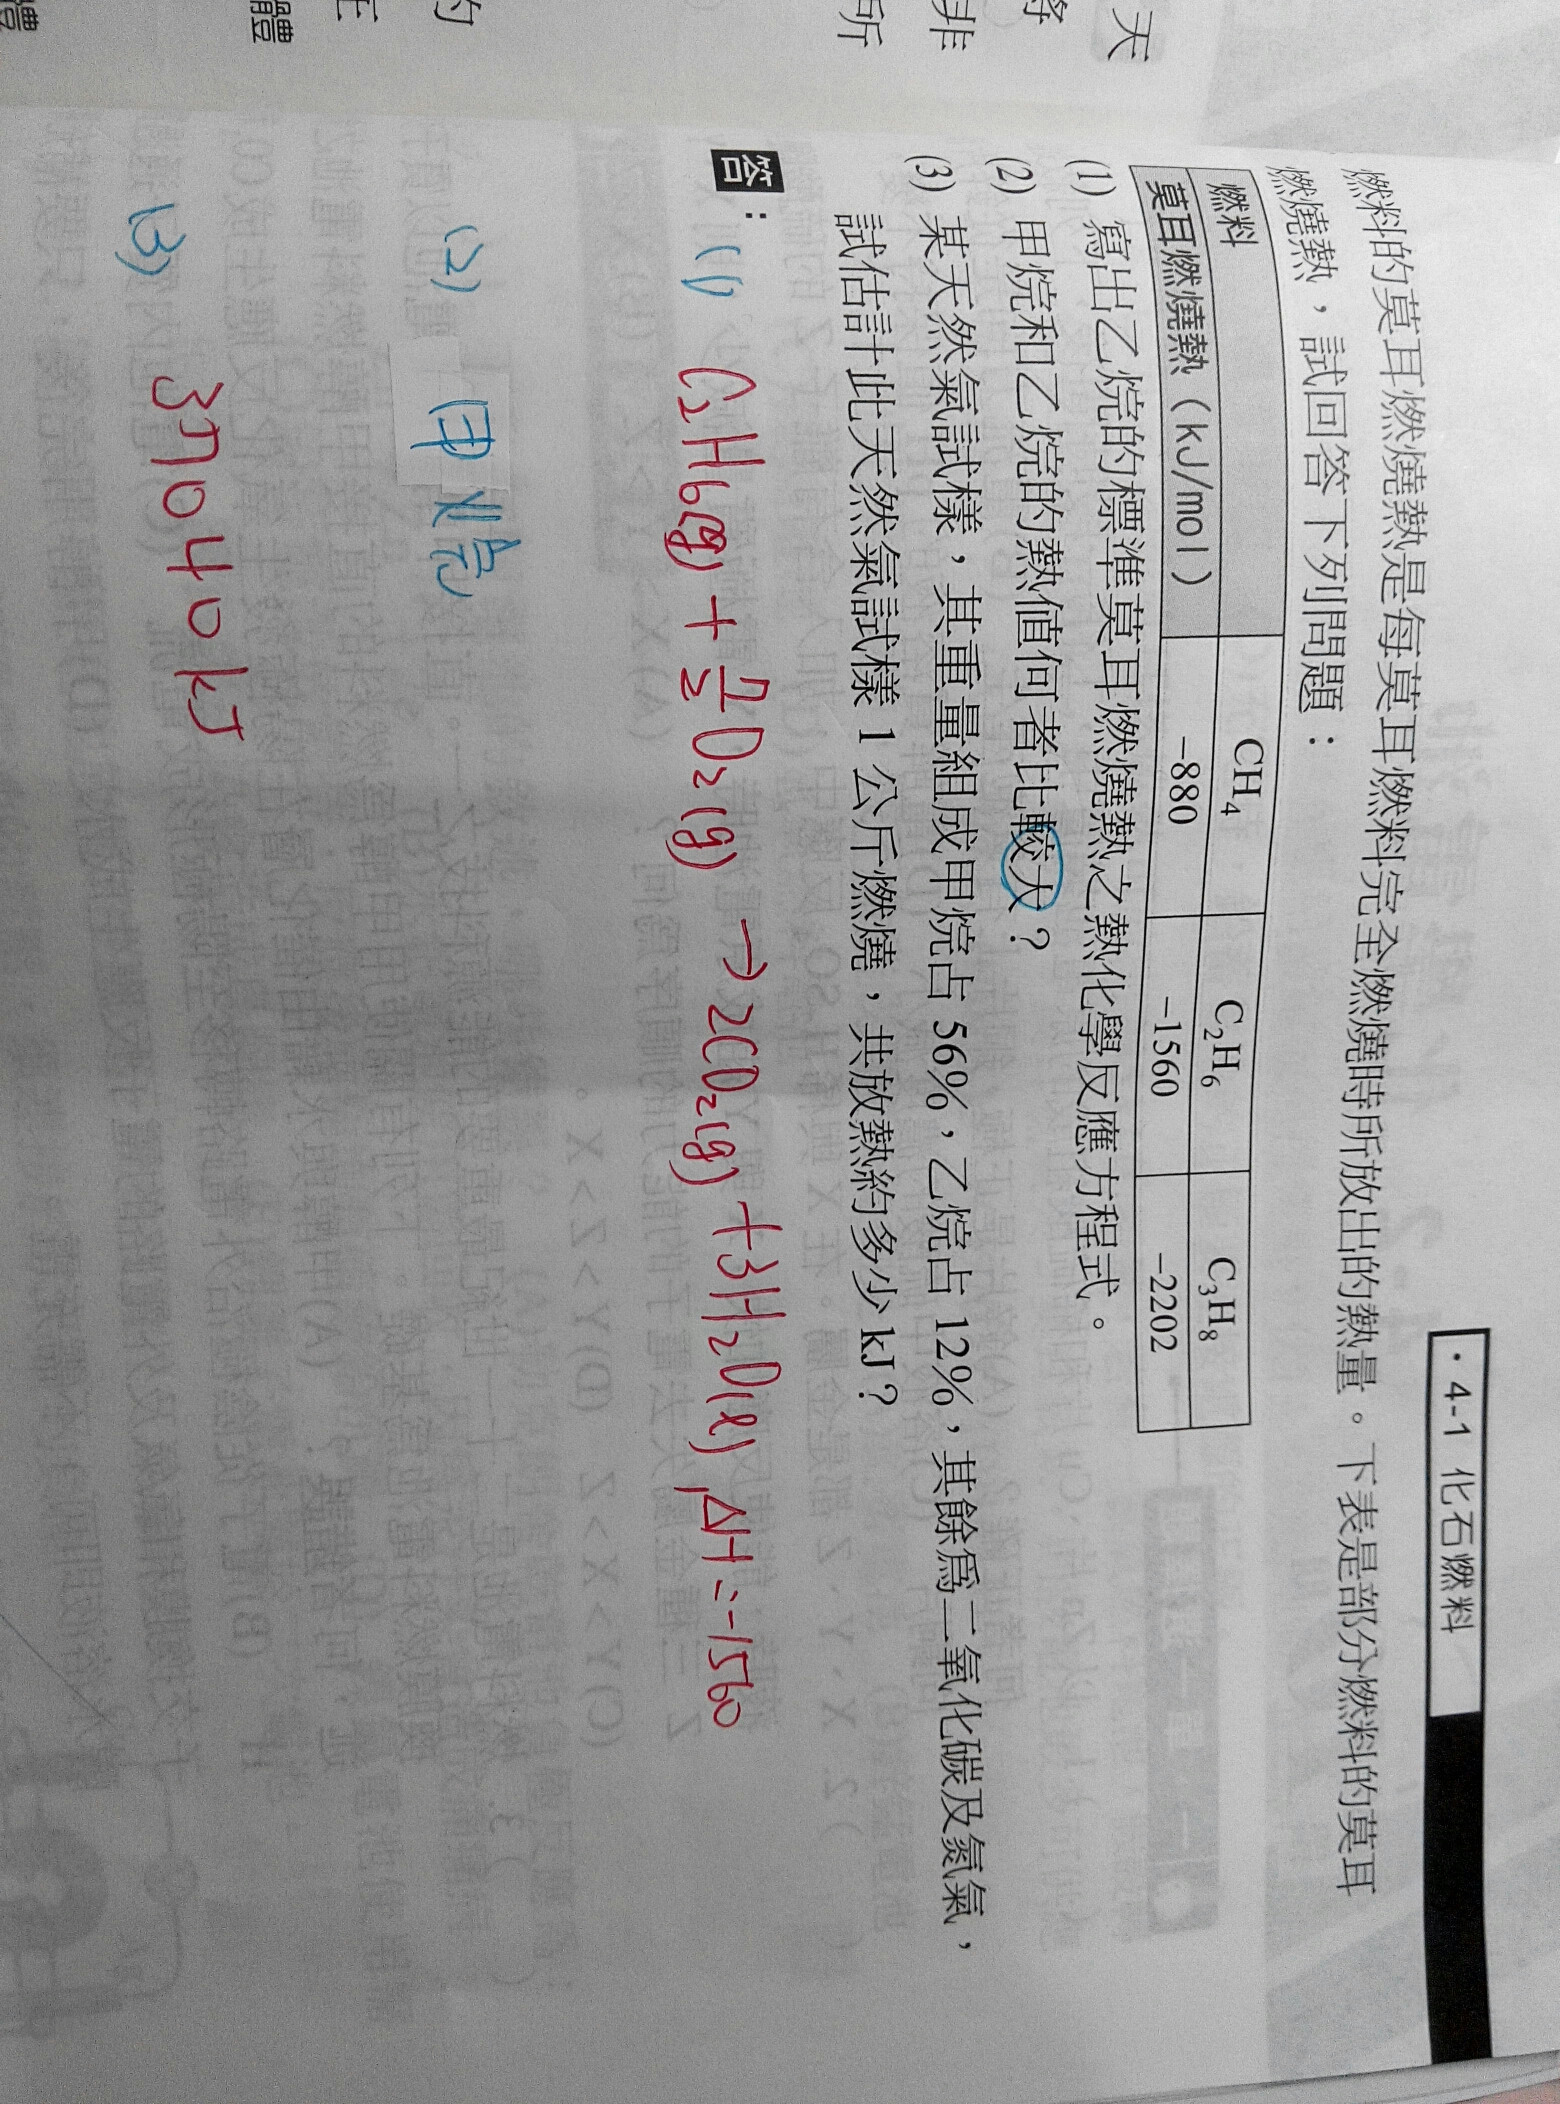 • 4-1 化石燃料
燃料的莫耳燃燒熱是每莫耳燃料完全燃燒時所放出的熱量。下表是部分燃料的莫耳
燃燒熱，試回答下列問題：
燃料 CH₄ C₂H₆ C₃H₈
莫耳燃燒熱（kJ/mol） -880 -1560 -2202
(1) 寫出乙烷的標準莫耳燃燒熱之熱化學反應方程式。
(2) 甲烷和乙烷的熱值何者比較大？
(3) 某天然氣試樣，其重量組成甲烷占 56%，乙烷占 12%，其餘為二氧化碳及氮氣，
試估計此天然氣試樣 1 公斤燃燒，共放熱約多少 kJ？
答：(1) C₂H₆(g) + 7/2 O₂(g) → 2CO₂(g) + 3H₂O(l), ΔH = -1560
(2) 甲烷
(3) 37040 kJ
天
將
非
所
的
體